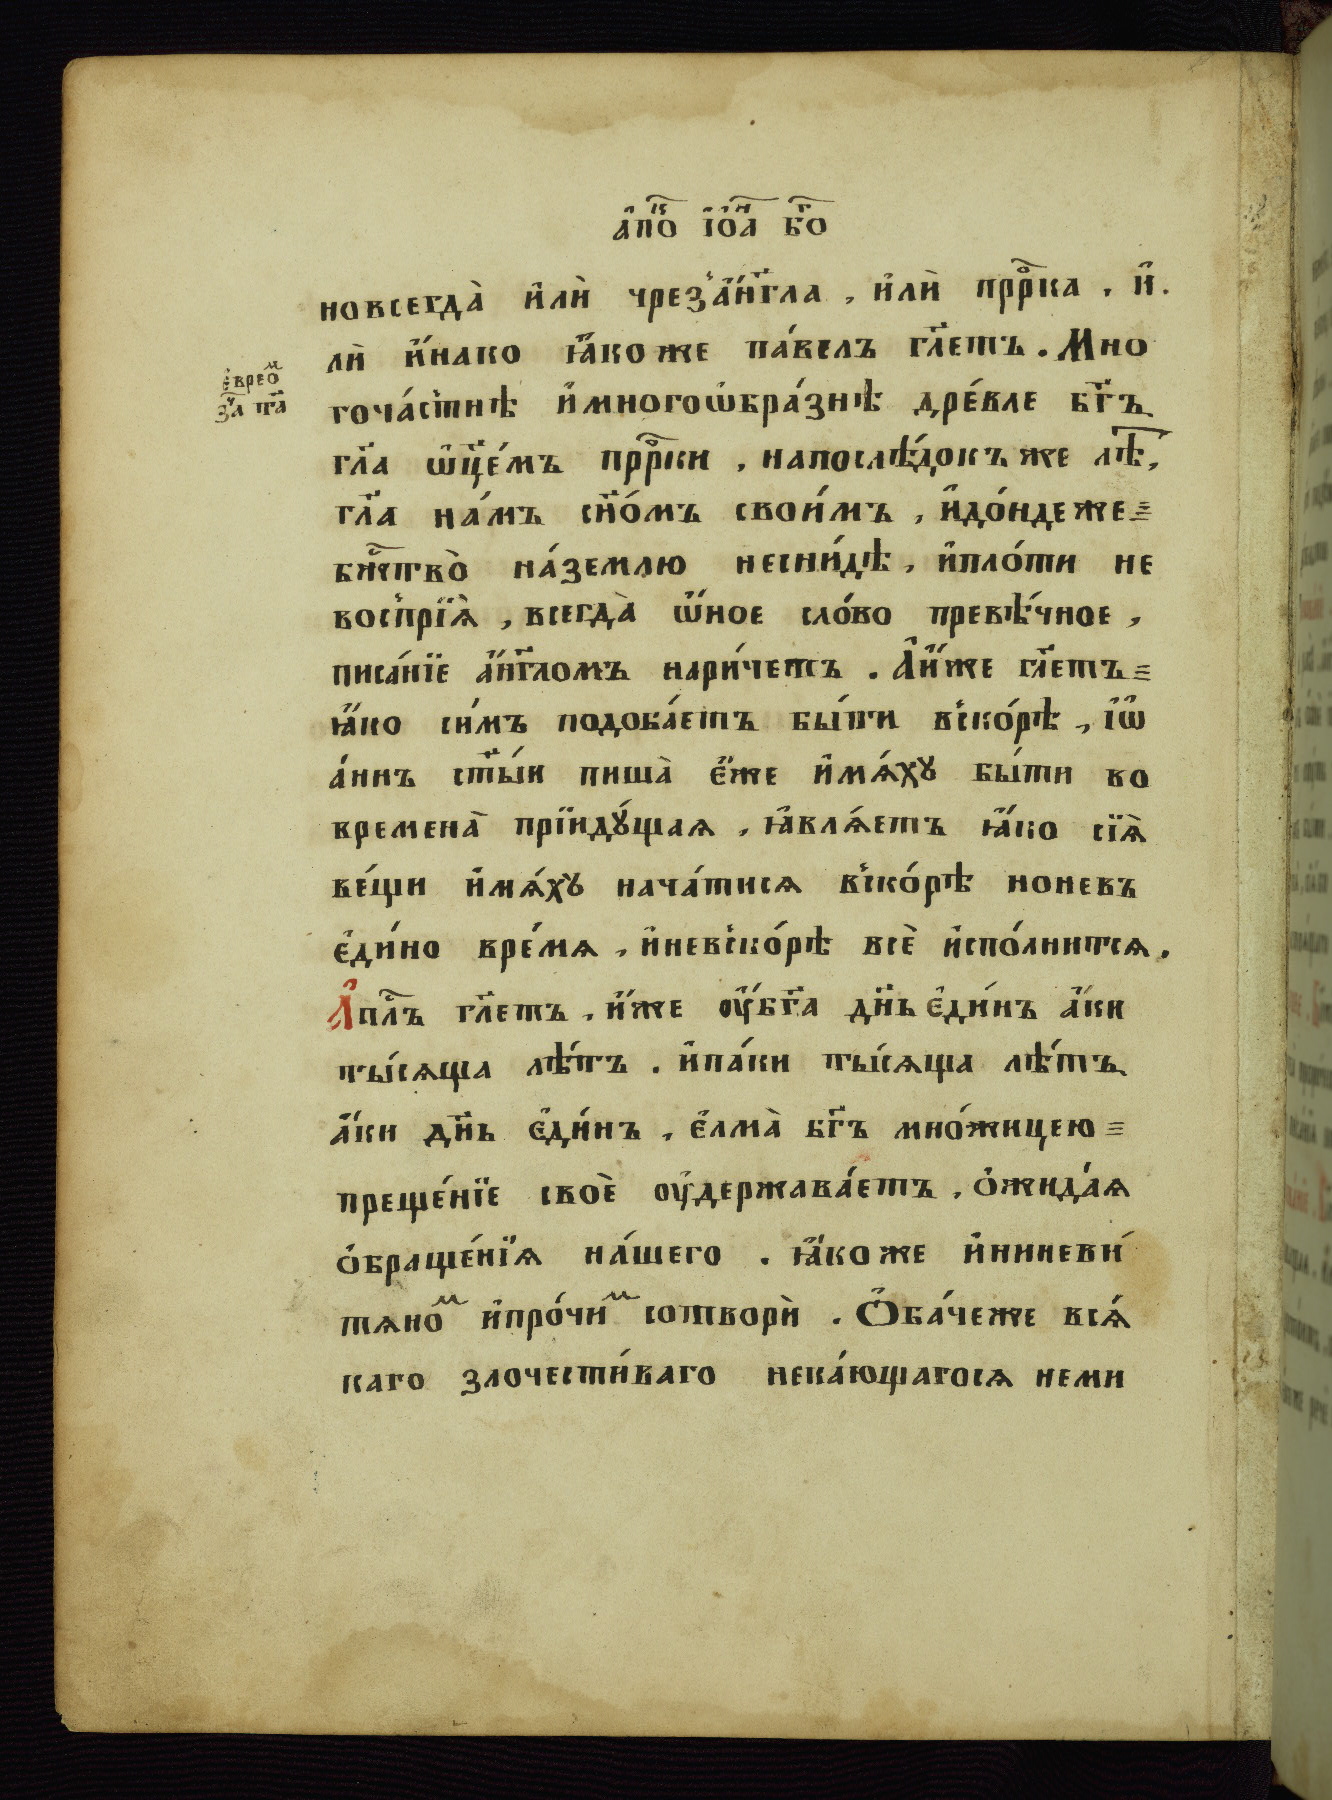 а҆пⷪ҇к і҆ѡⷩ҇а бг҃о
новсегда̀ и҆лѝ чрезъа҆́нг҃ла , и҆лѝ прⷪ҇рка , и҆.
лѝ и҆́нако ꙗ҆́коже па́велъ гл҃етъ . Мно
є҆вреѡⷨ
за҃ гл҃а
гоча́стнѣ и҆многоѡ҆бра́знѣ дре́вле бг҃ъ
гл҃а ѻ҆ц҃е́мъ прⷪ҇рки , напослѣ́докъ же лѣⷮ,
гл҃а на́мъ сн҃о́мъ свои́мъ , и҆до́ндеже=
бж҃ство̀ на́землю несни́дѣ , и҆пло́ти не
воспрїѧ̀ , всегда̀ ѡ҆́ное сло́во превѣ́чное ,
писа́нїе а҆́нг҃ломъ нари́четъ . А҆́нже гл҃етъ=
ꙗ҆́ко си́мъ подоба́етъ бы́ти вско́рѣ , і҆ѡ҆
а́ннъ ст҃ы́и пиша̀ є҆́же и҆мѧ́хꙋ бы́ти во
времена̀ прїидꙋ́щаѧ , ꙗ҆влѧ́етъ ꙗ҆́ко сїѧ̀
ве́щи и҆мѧ́хꙋ нача́тисѧ вско́рѣ ноневъ
є҆ди́но вре́мѧ , и҆невско́рѣ всѐ и҆спо́лнитсѧ .
А҆пⷭ҇лъ гл҃етъ , и҆́же ᲂу҆бг҃а дн҃ь є҆ди́нъ а҆́ки
ты́сѧща лѣ́тъ . и҆па́ки ты́сѧща лѣ́тъ
а҆́ки дн҃ь є҆ди́нъ , є҆лма̀ бг҃ъ мно́жицею=
преще́нїе своѐ ᲂу҆держава́етъ , ѻ҆жида́ѧ
ѻ҆браще́нїѧ на́шего . ꙗ҆́коже и҆ниневи́
тѧноⷨ и҆про́чиⷨ сотворѝ . Ѻ҆ба́чеже всѧ́
каго злочести́ваго нека́ющагосѧ неми